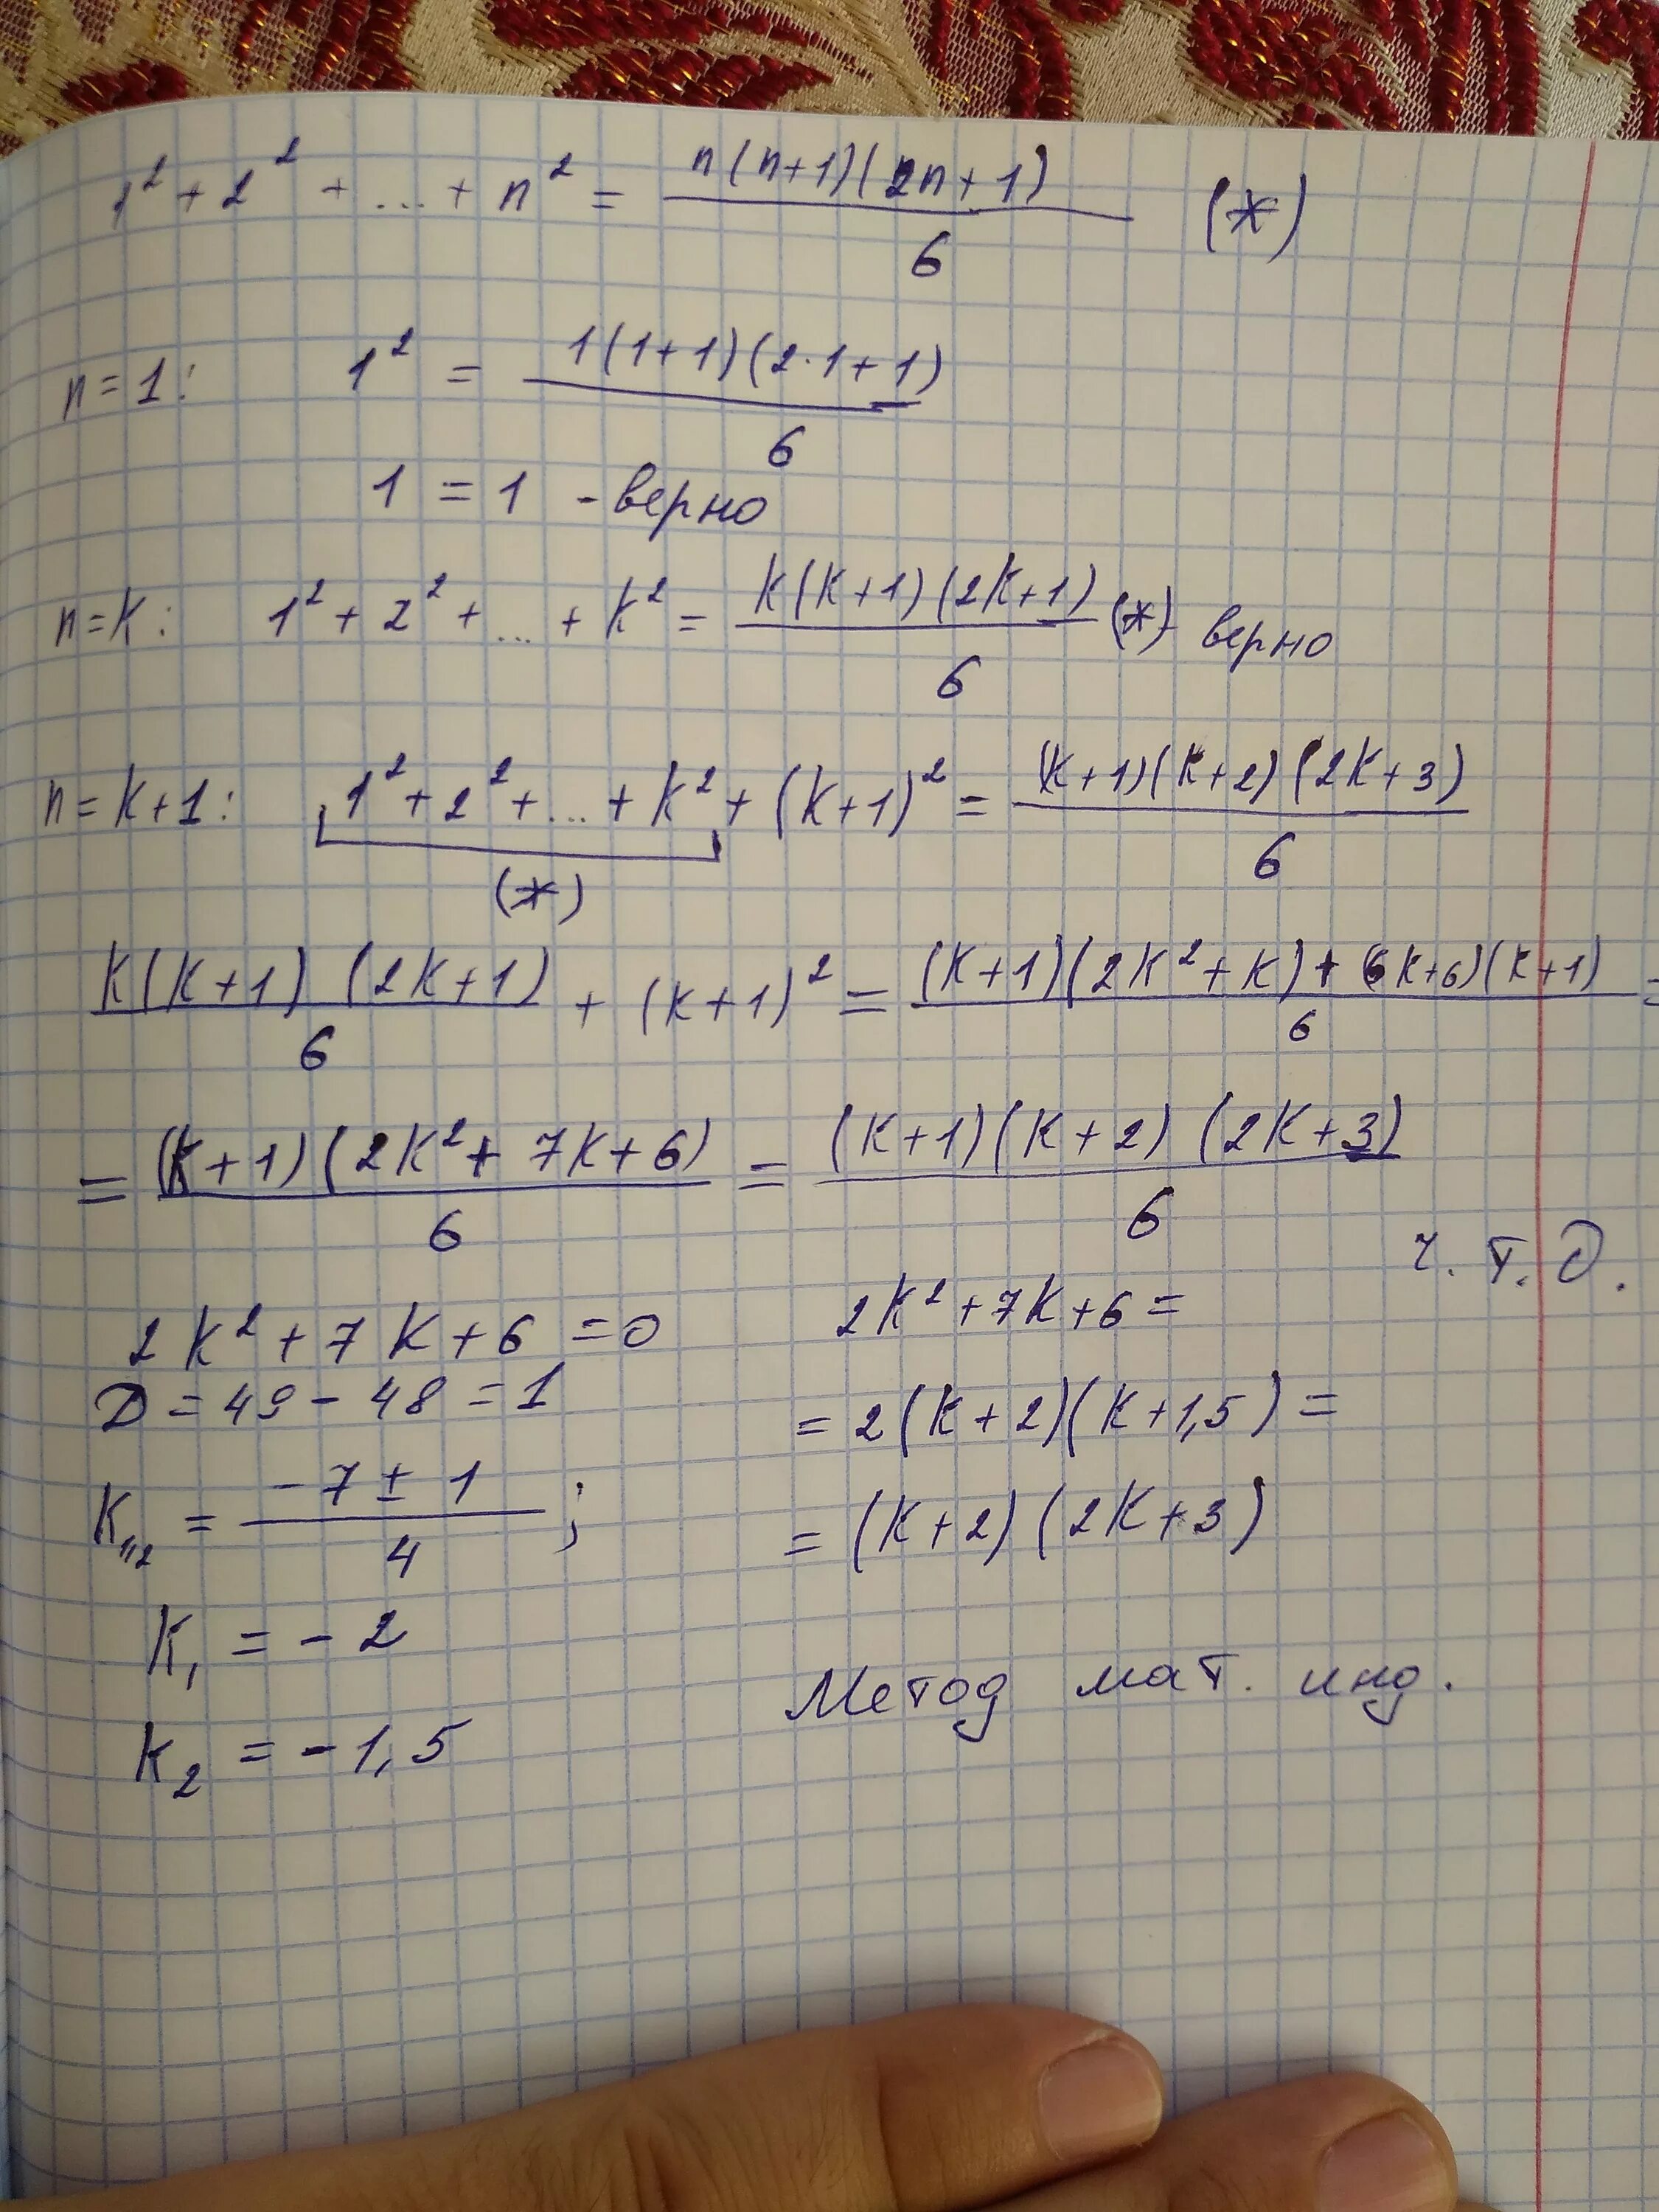 1² + 2² + ... + n² = n(n+1)(2n+1) / 6 (*)
n=1: 1² = 1(1+1)(2·1+1) / 6
1 = 1 - верно
n=k: 1² + 2² + ... + k² = k(k+1)(2k+1) / 6 (*) верно
n=k+1: 1² + 2² + ... + k² + (k+1)² = (k+1)(k+2)(2k+3) / 6
(*)
k(k+1)(2k+1) / 6 + (k+1)² = (k+1)(2k²+k)+(6k+6)(k+1) / 6 =
= (k+1)(2k²+7k+6) / 6 = (k+1)(k+2)(2k+3) / 6
ч.т.д.
2k²+7k+6=0
D=49-48=1
k₁,₂ = -7±1 / 4 ;
k₁ = -2
k₂ = -1,5
2k²+7k+6=
=2(k+2)(k+1,5)=
=(k+2)(2k+3)
Метод мат. инд.